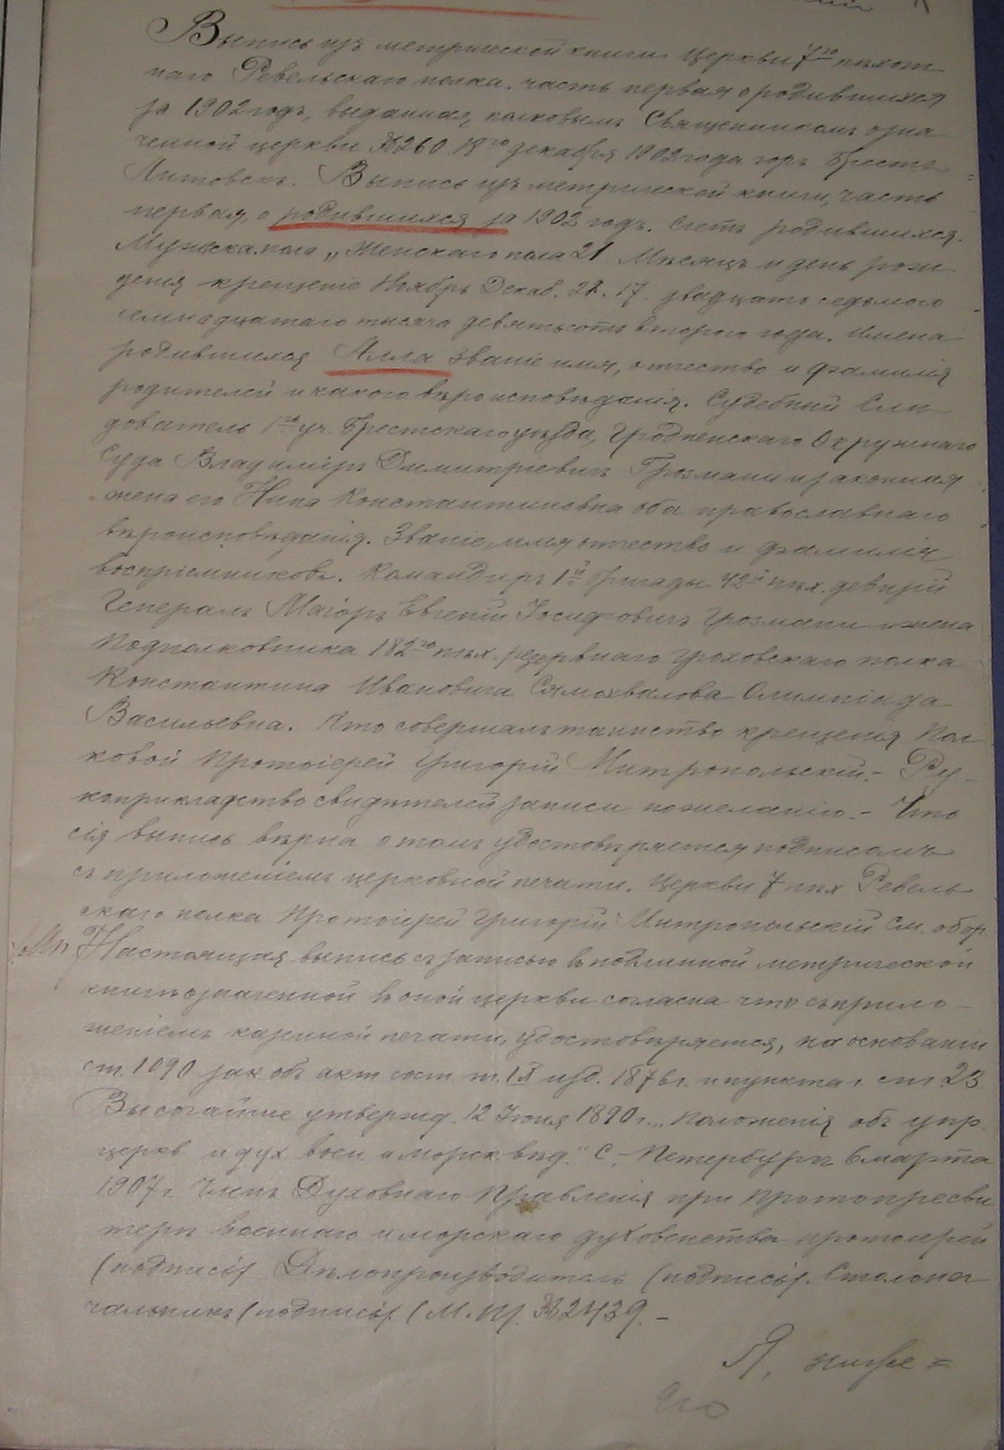 Выпись изъ метрической книги Церкви 7го пѣхот
наго Ревельскаго полка. часть первая о родившихся
за 1902 годъ, выданная, полковымъ Священникомъ озна
ченной церкви №260 18го декабря 1902 года гор. Брестъ-
Литовскъ. Выпись изъ метрической книги, часть
первая, о родившихся за 1902 годъ. Счетъ родившихся.
Мужска. пола „ Женскаго пола 21 Мѣсяцъ и день рож
денія крещенія Ноябрь Декаб. 27. 17. двадцать седьмого
семнадцатаго тысяча девятьсотъ второго года. Имена
родившихся Алла Званіе имя, отчество и фамилія
родителей и какого вѣроисповѣданія. Судебный Слѣ
дователь 1го уч. Брестскаго уѣзда, Гродненскаго Окружнаго
Суда Владиміръ Димитріевичъ Грозманъ и законная
жена его Нина Константиновна оба православнаго
вѣроисповѣданія. Званіе, имя отчество и фамилія
воспріемниковъ. Командиръ 1й бригады 42й пѣх. дивизіи
Генералъ Маіоръ Евгеній Іосифовичъ Грозманъ и жена
Подполковника 182го пѣх. резервнаго Гроховскаго полка
Константина Ивановича Самохвалова Олимпіада
Васильевна. Кто совершалъ таинство крещенія Пол
ковой Протоіерей Григорій Митропольскій.- Ру-
коприкладство свидѣтелей записи по желанію.- Что
сія выпись вѣрна о томъ удостовѣряется подписомъ
съ приложеніемъ церковной печати. Церкви 7 пѣх Ревель
скаго полка Протоіерей Григорій Митропольскій См. обор.
Мп Настоящая выпись съ записью въ подлинной метрической
книгѣ означенной въ оной церкви согласна что съ прило-
женіемъ казенной печати, удостовѣряется, на основаніи
ст. 1090 зак объ акт сост т. IX изд. 1876 г. и пункта г. ст. 23
Высочайше утвержд. 12 Іюня 1890 г. „Положенія объ упр.
церкв и дух воен и морск вѣд." С.-Петербургъ 6 марта
1907 г. Членъ Духовнаго Правленія при Протопресви
терѣ военнаго и морскаго духовенства протоіерей
(подпись) Дѣлопроизводитель (подпись). Столона
чальникъ (подпись) (М.П). №2439.-
Я, ниже=